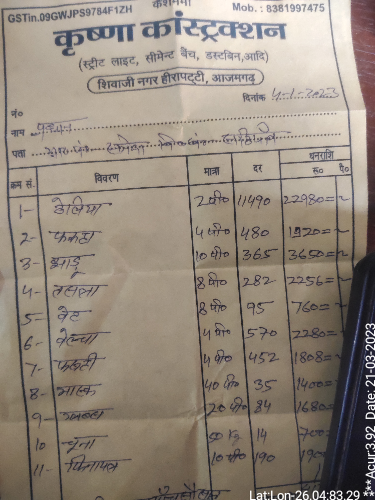 GSTin.09GWJPS9784F1ZH
Mob.: 8381997475
कृष्णा कांस्ट्रक्शन
(स्ट्रीट लाइट, सीमेन्ट बैंच, डस्टबिन,आदि)
शिवाजी नगर हीरापट्टी, आजमगढ़
दिनांक 4-1-2023
नं०
नाम प्रधान
पता
क्रम सं. विवरण मात्रा दर धनराशि
रु० पै०
1- ठेलिया 2 पी० 11490 22980=
2- फावड़ा 4 पी० 480 1920=
3- झाड़ू 10 पी० 365 3650=
4- तसला 8 पी० 282 2256=
5- बेट 8 पी० 95 760=
6- बेल्चा 4 पी० 570 2280=
7- 4 पी० 452 1808=
8- मास्क 40 पी० 35 1400=
9- 20 पी० 84 1680=
10 चूना 50 Kg 14 700=
11- 10 पी० 190 1900
Lat:Lon-26.04:83.29 ***Acur:3.92 Date: 21-03-2023